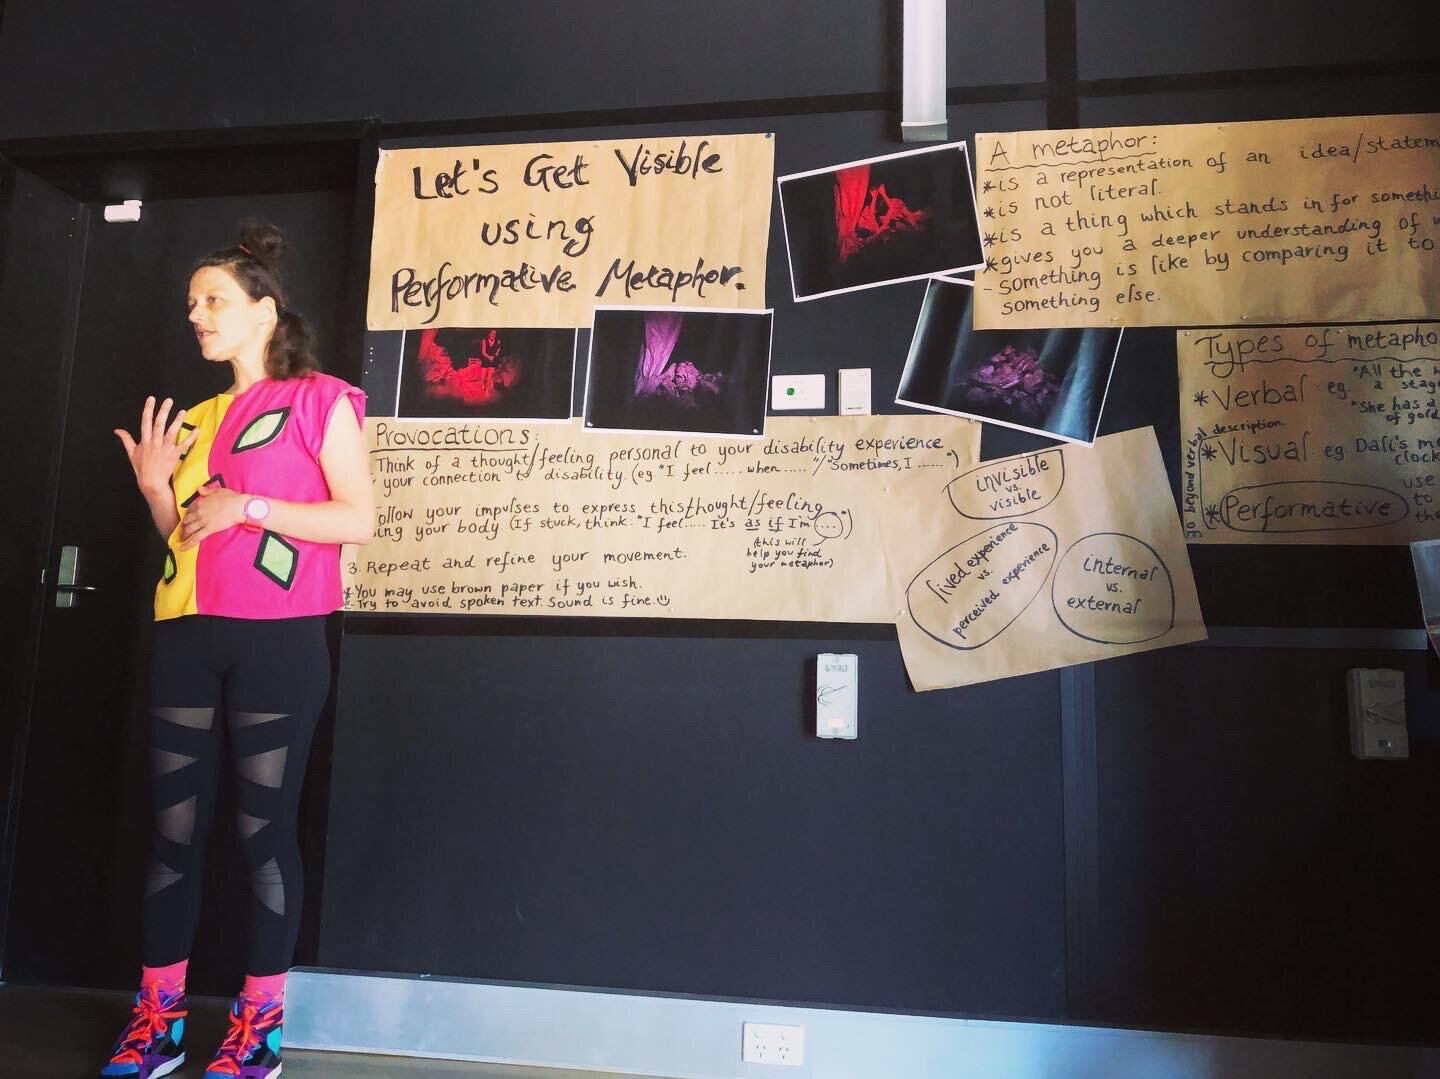 Let's Get Visible
using
Performative Metaphor.
A metaphor:
*is a representation of an idea/
*is not literal.
*is a thing which stands in for
*gives you a deeper understanding of
- something is like by comparing it to
something else.
Types of
*Verbal eg. "All the
a
"She has a
of
go beyond verbal description.
*Visual eg. Dali's
use
to
*Performative
Provocations:
Think of a thought/feeling personal to your disability experience
/your connection to disability. (eg. "I feel ..... when ....."/"Sometimes, I ......")
your impulses to express this thought/feeling
your body (If stuck, think: "I feel..... It's as if I'm ....")
(this will
help you find
your metaphor)
3. Repeat and refine your movement.
*You may use brown paper if you wish.
*Try to avoid spoken text. Sound is fine. ☺
invisible
vs.
visible
lived experience
vs.
perceived experience
internal
vs.
external